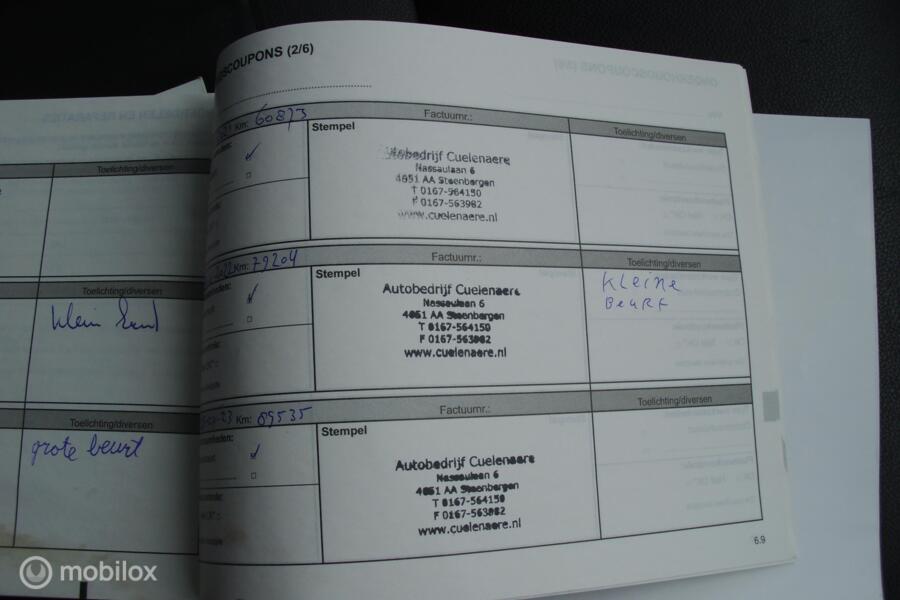 Toelichting/diversen
Toelichting/diversen
klein
Toelichting/diversen
grote beurt
COUPONS (2/6)
Km: 60873
Factuurnr.:
Toelichting/diversen
Stempel
Autobedrijf Cuelenaere
Nassaulaan 6
4651 AA Steenbergen
T 0167-564150
F 0167-563982
www.cuelenaere.nl
2022 Km: 79204
Factuurnr.:
Toelichting/diversen
heden:
Stempel
Kleine
Beurt
Autobedrijf Cuelenaere
Nassaulaan 6
4651 AA Steenbergen
T 0167-564150
F 0167-563982
www.cuelenaere.nl
23 Km: 89535
Factuurnr.:
Toelichting/diversen
heden:
Stempel
Autobedrijf Cuelenaere
Nassaulaan 6
4651 AA Steenbergen
T 0167-564150
F 0167-563982
www.cuelenaere.nl
6.9
mobilox